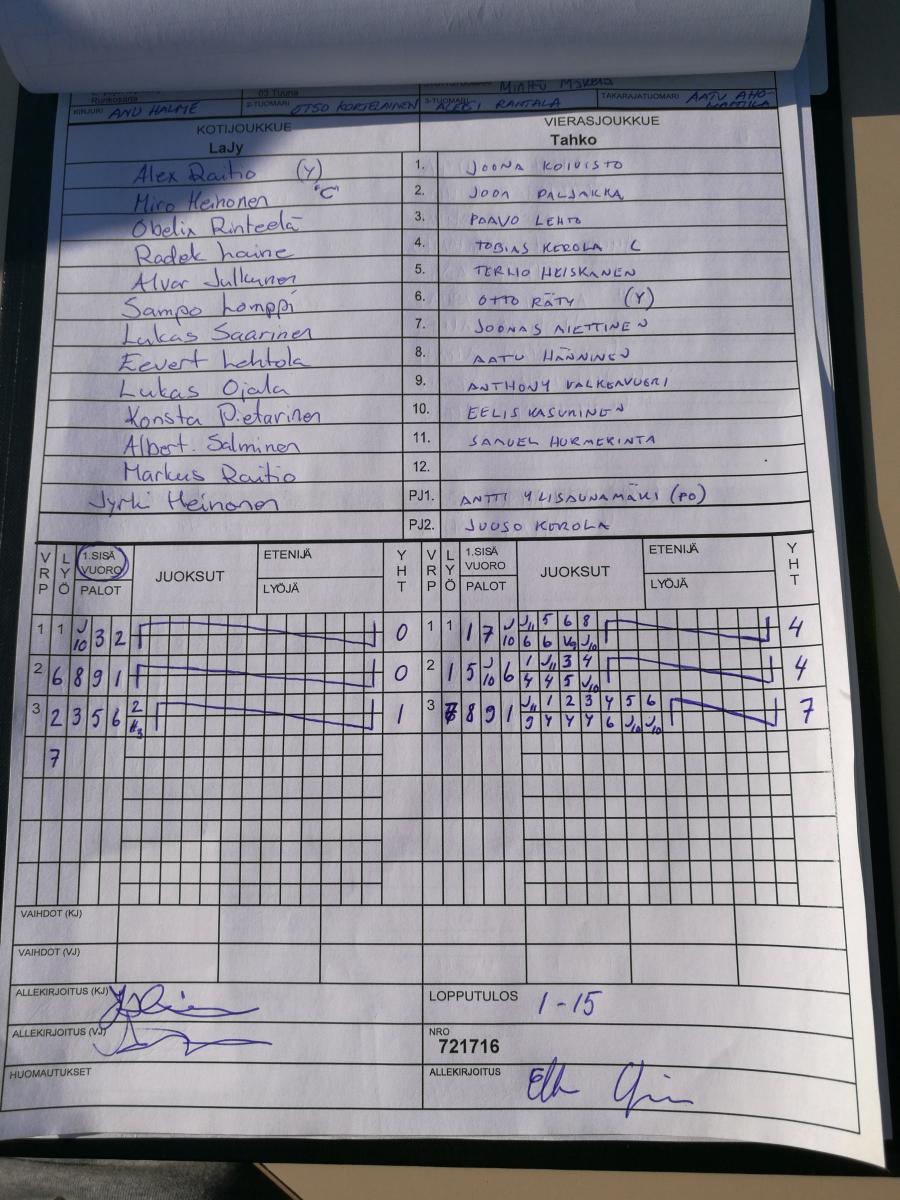 Runkosarja 03 Tuuna
KIRJURI ANU HALME 2-TUOMARI OTSO KORTELAINEN 3-TUOMARI ALEKSI RANTALA TAKARAJATUOMARI AATU AHO-
KOTIJOUKKUE VIERASJOUKKUE
LaJy Tahko
Alex Raitio (Y) 1. JOONA KOIVISTO
Miro Heinonen "C" 2. JOOA PALJAKKA
Obelix Rinteelä 3. PAAVO LEHTO
Radek Laine 4. TOBIAS KEROLA C
Alvar Julkunen 5. TERHO HEISKANEN
Sampo Lomppi 6. OTTO RÄTY (Y)
Lukas Saarinen 7. JOONAS MIETTINEN
Eevert Lehtola 8. AATU HÄNNINEN
Lukas Ojala 9. ANTHONY VALKEAVUORI
Konsta Pietarinen 10. EELIS KASURINEN
Albert Salminen 11. SAMUEL HURMERINTA
Markus Raitio 12.
Jyrki Heinonen PJ1. ANTTI YLISAUNAMÄKI (PO)
PJ2. JUUSO KEROLA
VRP LYÖ 1.SISÄ VUORO PALOT JUOKSUT ETENIJÄ LYÖJÄ YHT VRP LYÖ 1.SISÄ VUORO PALOT JUOKSUT ETENIJÄ LYÖJÄ YHT
1 1 J10 3 2 0 1 1 1 7 J10 J11 5 6 8 4
6 6 K9 J10
2 6 8 9 1 0 2 1 5 J10 6 1 J11 3 4 4
4 4 5 J10
3 2 3 5 6 2 1 3 8 9 1 J11 1 2 3 4 5 6 7
K3 9 4 4 4 6 J10 J10
7
VAIHDOT (KJ)
VAIHDOT (VJ)
ALLEKIRJOITUS (KJ) LOPPUTULOS 1-15
ALLEKIRJOITUS (VJ) NRO 721716
HUOMAUTUKSET ALLEKIRJOITUS